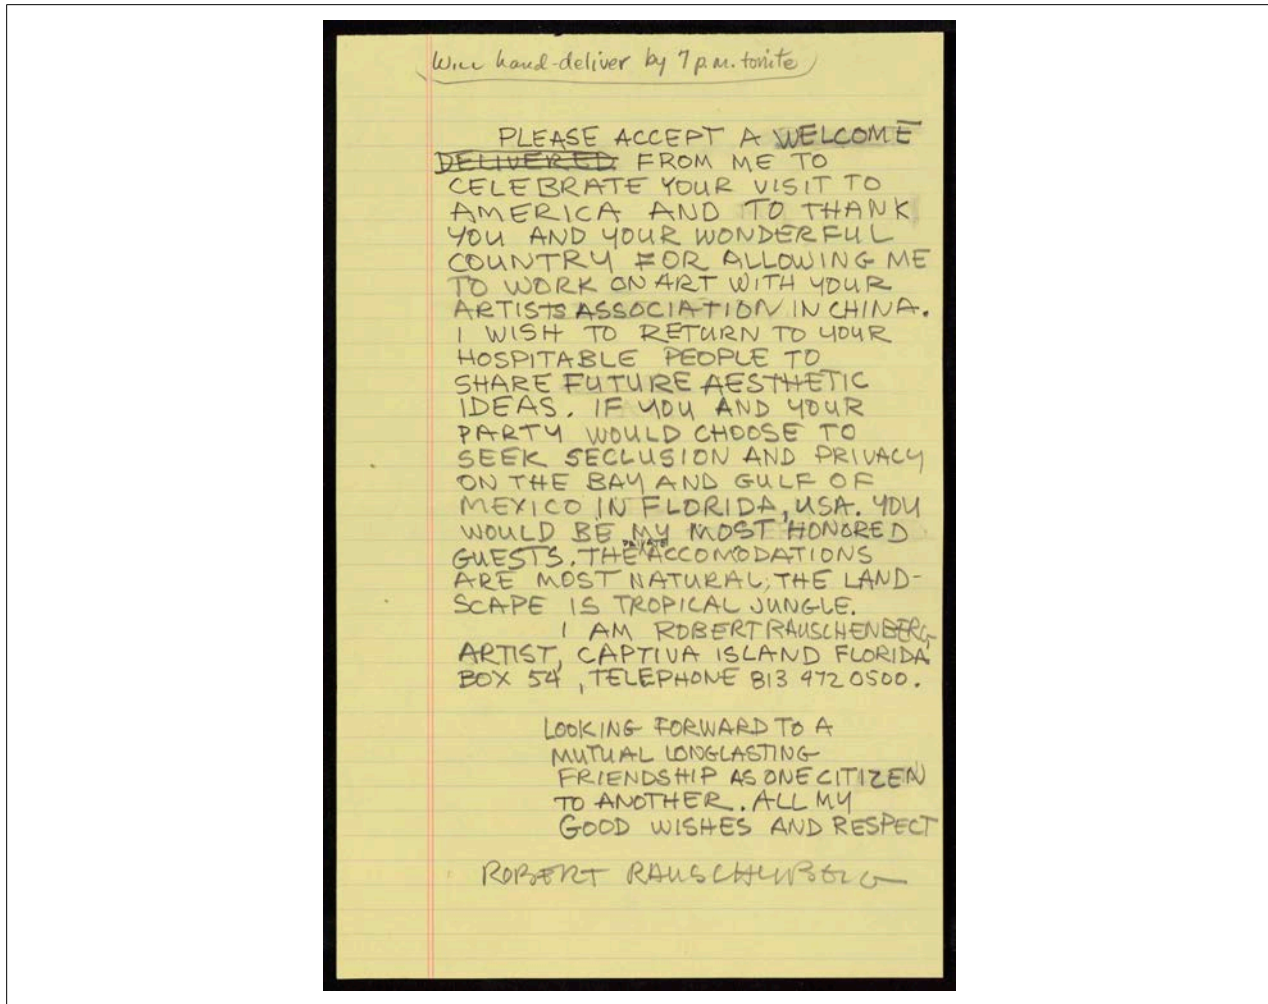 Will hand-deliver by 7 p.m. tonite
PLEASE ACCEPT A WELCOME
DELIVERED FROM ME TO
CELEBRATE YOUR VISIT TO
AMERICA AND TO THANK
YOU AND YOUR WONDERFUL
COUNTRY FOR ALLOWING ME
TO WORK ON ART WITH YOUR
ARTISTS ASSOCIATION IN CHINA.
I WISH TO RETURN TO YOUR
HOSPITABLE PEOPLE TO
SHARE FUTURE AESTHETIC
IDEAS. IF YOU AND YOUR
PARTY WOULD CHOOSE TO
SEEK SECLUSION AND PRIVACY
ON THE BAY AND GULF OF
MEXICO IN FLORIDA, USA. YOU
WOULD BE MY MOST HONORED
GUESTS. THE PRIVATE ACCOMODATIONS
ARE MOST NATURAL, THE LAND-
SCAPE IS TROPICAL JUNGLE.
I AM ROBERT RAUSCHENBERG
ARTIST, CAPTIVA ISLAND FLORIDA
BOX 54, TELEPHONE 813 472 0500.
LOOKING FORWARD TO A
MUTUAL LONGLASTING
FRIENDSHIP AS ONE CITIZEN
TO ANOTHER. ALL MY
GOOD WISHES AND RESPECT
ROBERT RAUSCHENBERG